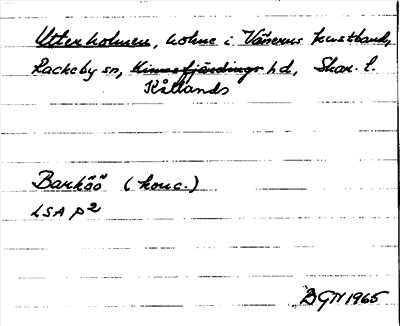 Utterholmen, holme i Vänerns kustband,
Rackeby sn, Kinnefjärdings hd, Skar. l.
Kållands
Barköö (konc.)
LSA P2
BGN 1965